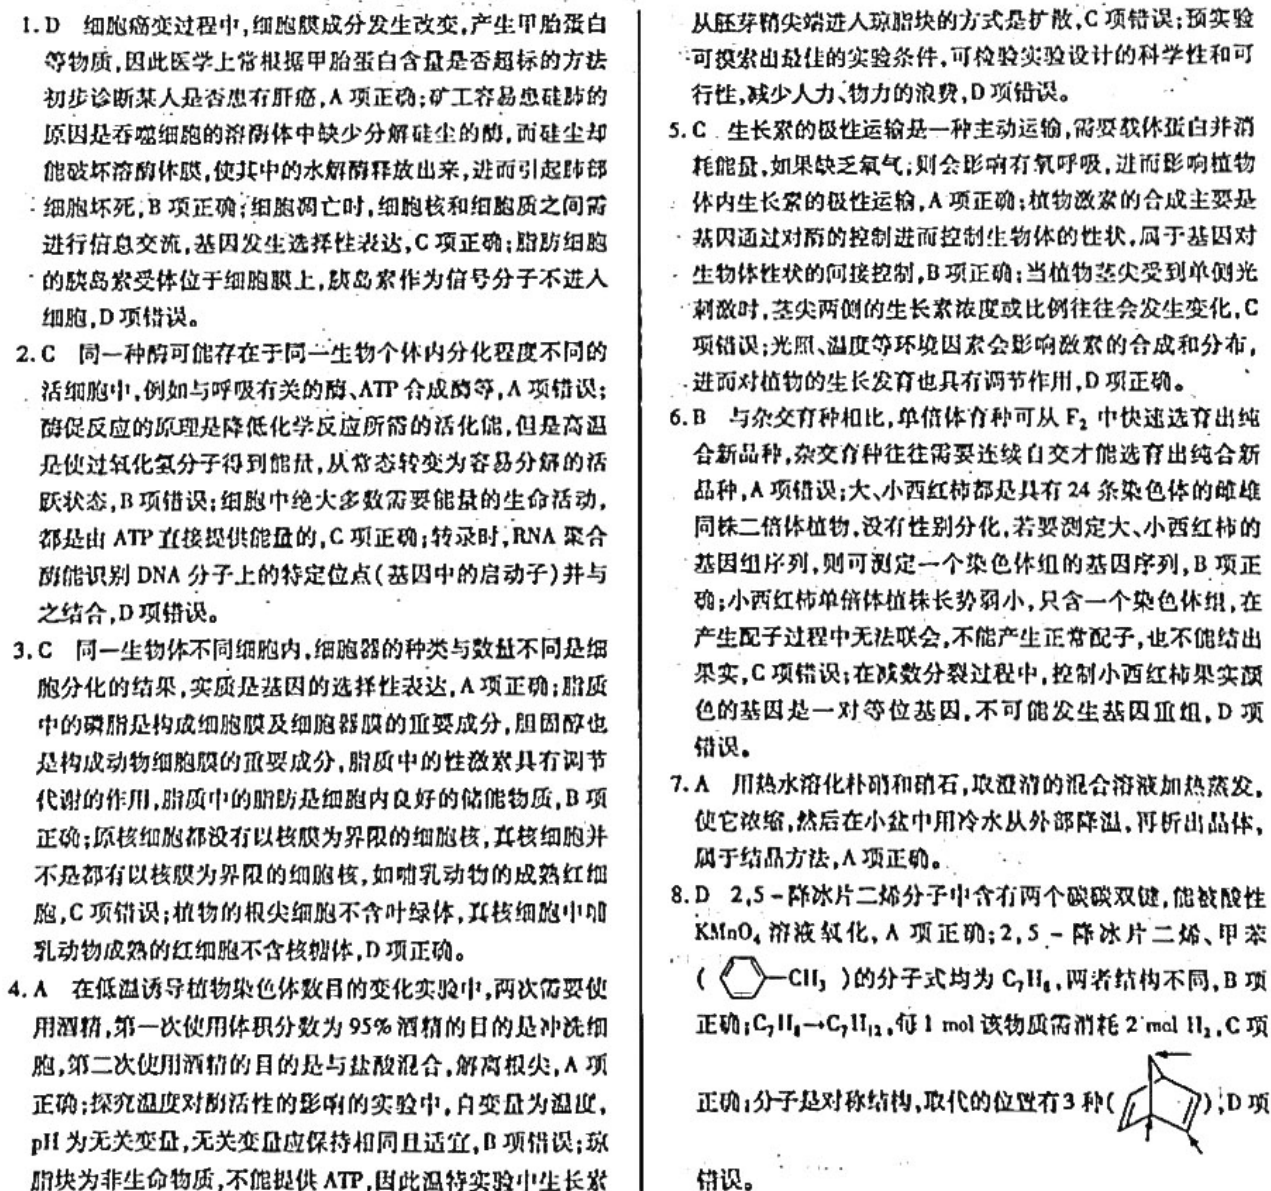 1. D 细胞癌变过程中,细胞膜成分发生改变,产生甲胎蛋白
等物质,因此医学上常根据甲胎蛋白含量是否超标的方法
初步诊断某人是否患有肝癌,A 项正确;矿工容易患硅肺的
原因是吞噬细胞的溶酶体中缺少分解硅尘的酶,而硅尘却
能破坏溶酶体膜,使其中的水解酶释放出来,进而引起肺部
细胞坏死,B 项正确;细胞凋亡时,细胞核和细胞质之间需
进行信息交流,基因发生选择性表达,C 项正确;脂肪细胞
的胰岛素受体位于细胞膜上,胰岛素作为信号分子不进入
细胞,D 项错误。
2. C 同一种酶可能存在于同一生物个体内分化程度不同的
活细胞中,例如与呼吸有关的酶、ATP 合成酶等,A 项错误;
酶促反应的原理是降低化学反应所需的活化能,但是高温
是使过氧化氢分子得到能量,从常态转变为容易分解的活
跃状态,B 项错误;细胞中绝大多数需要能量的生命活动,
都是由 ATP 直接提供能量的,C 项正确;转录时,RNA 聚合
酶能识别 DNA 分子上的特定位点(基因中的启动子)并与
之结合,D 项错误。
3. C 同一生物体不同细胞内,细胞器的种类与数量不同是细
胞分化的结果,实质是基因的选择性表达,A 项正确;脂质
中的磷脂是构成细胞膜及细胞器膜的重要成分,胆固醇也
是构成动物细胞膜的重要成分,脂质中的性激素具有调节
代谢的作用,脂质中的脂肪是细胞内良好的储能物质,B 项
正确;原核细胞都没有以核膜为界限的细胞核,真核细胞并
不是都有以核膜为界限的细胞核,如哺乳动物的成熟红细
胞,C 项错误;植物的根尖细胞不含叶绿体,真核细胞中哺
乳动物成熟的红细胞不含核糖体,D 项正确。
4. A 在低温诱导植物染色体数目的变化实验中,两次需要使
用酒精,第一次使用体积分数为 95% 酒精的目的是冲洗细
胞,第二次使用酒精的目的是与盐酸混合,解离根尖,A 项
正确;探究温度对酶活性的影响的实验中,自变量为温度,
pH 为无关变量,无关变量应保持相同且适宜,B 项错误;琼
脂块为非生命物质,不能提供 ATP,因此温特实验中生长素
从胚芽鞘尖端进入琼脂块的方式是扩散,C 项错误;预实验
可摸索出最佳的实验条件,可检验实验设计的科学性和可
行性,减少人力、物力的浪费,D 项错误。
5. C 生长素的极性运输是一种主动运输,需要载体蛋白并消
耗能量,如果缺乏氧气,则会影响有氧呼吸,进而影响植物
体内生长素的极性运输,A 项正确;植物激素的合成主要是
基因通过对酶的控制进而控制生物体的性状,属于基因对
生物体性状的间接控制,B 项正确;当植物茎尖受到单侧光
刺激时,茎尖两侧的生长素浓度或比例往往会发生变化,C
项错误;光照、温度等环境因素会影响激素的合成和分布,
进而对植物的生长发育也具有调节作用,D 项正确。
6. B 与杂交育种相比,单倍体育种可从 F₂ 中快速选育出纯
合新品种,杂交育种往往需要连续自交才能选育出纯合新
品种,A 项错误;大、小西红柿都是具有 24 条染色体的雌雄
同株二倍体植物,没有性别分化,若要测定大、小西红柿的
基因组序列,则可测定一个染色体组的基因序列,B 项正
确;小西红柿单倍体植株长势弱小,只含一个染色体组,在
产生配子过程中无法联会,不能产生正常配子,也不能结出
果实,C 项错误;在减数分裂过程中,控制小西红柿果实颜
色的基因是一对等位基因,不可能发生基因重组,D 项
错误。
7. A 用热水溶化朴硝和硝石,取澄清的混合溶液加热蒸发,
使它浓缩,然后在小盆中用冷水从外部降温,再析出晶体,
属于结晶方法,A 项正确。
8. D 2,5-降冰片二烯分子中含有两个碳碳双键,能被酸性
KMnO₄ 溶液氧化,A 项正确;2,5-降冰片二烯、甲苯
( —CH₃ )的分子式均为 C₇H₈,两者结构不同,B 项
正确;C₇H₈→C₇H₁₂,每 1 mol 该物质需消耗 2 mol H₂,C 项
正确;分子是对称结构,取代的位置有 3 种( ),D 项
错误。